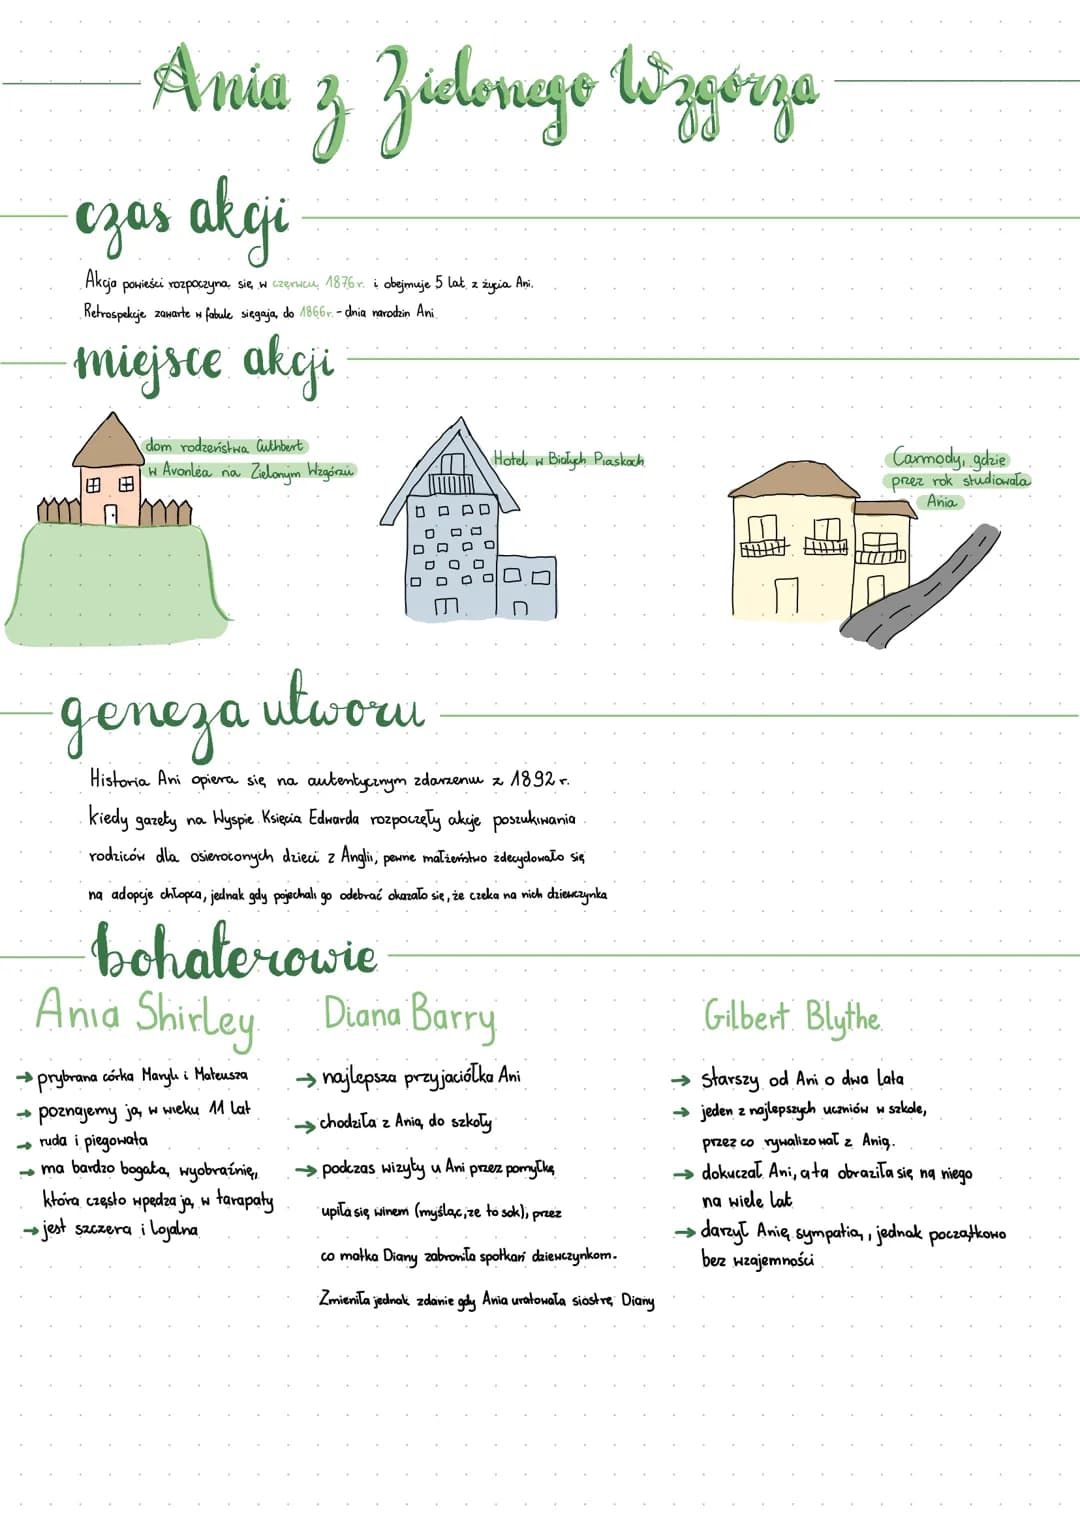 Ania z Zielonego Wzgórza
czas akcji
Akcja powieści rozpoczyna się w czerwcu 1876r. i obejmuje 5 lat z życia Ani.
Retrospekcje zawarte w fabule sięgają do 1866r. - dnia narodzin Ani
miejsce akcji
dom rodzeństwa Cuthbert
w Avonlea na Zielonym Wzgórzu
Hotel w Białych Piaskach
Carmody, gdzie
przez rok studiowała
Ania
geneza utworu
Historia Ani opiera się na autentycznym zdarzeniu z 1892 r.
kiedy gazety na Wyspie Księcia Edwarda rozpoczęły akcje poszukiwania
rodziców dla osieroconych dzieci z Anglii, pewne małżeństwo zdecydowało się
na adopcje chłopca, jednak gdy pojechali go odebrać okazało się, że czeka na nich dziewczynka
bohaterowie
Ania Shirley
→ prybrana córka Maryli i Mateusza
→ poznajemy ją w wieku 11 lat
→ ruda i piegowata
→ ma bardzo bogatą wyobraźnię,
która często wpędza ją w tarapaty
→ jest szczera i lojalna
Diana Barry
→ najlepsza przyjaciółka Ani
→ chodziła z Anią do szkoły
→ podczas wizyty u Ani przez pomyłkę
upiła się winem (myśląc, że to sok), przez
co matka Diany zabroniła spotkań dziewczynkom.
Zmieniła jednak zdanie gdy Ania uratowała siostrę Diany
Gilbert Blythe
→ starszy od Ani o dwa lata
→ jeden z najlepszych uczniów w szkole,
przez co rywalizował z Anią.
→ dokuczał Ani, a ta obraziła się na niego
na wiele lat
→ darzył Anię sympatią, jednak początkowo
bez wzajemności